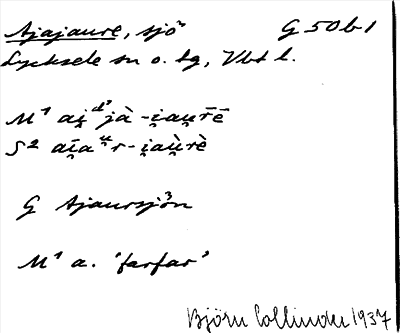 Ajajaure, sjö³ G 50 b 1
Lycksele sn o. tg, Vbt l.
M¹ ai̯ᵈ'jà-i̯au̯rē
S² aī̯aᵘ̯r-i̯aù̯rè
G Ajaursjön³
M¹ a. 'farfar'
Björn Collinder 1937